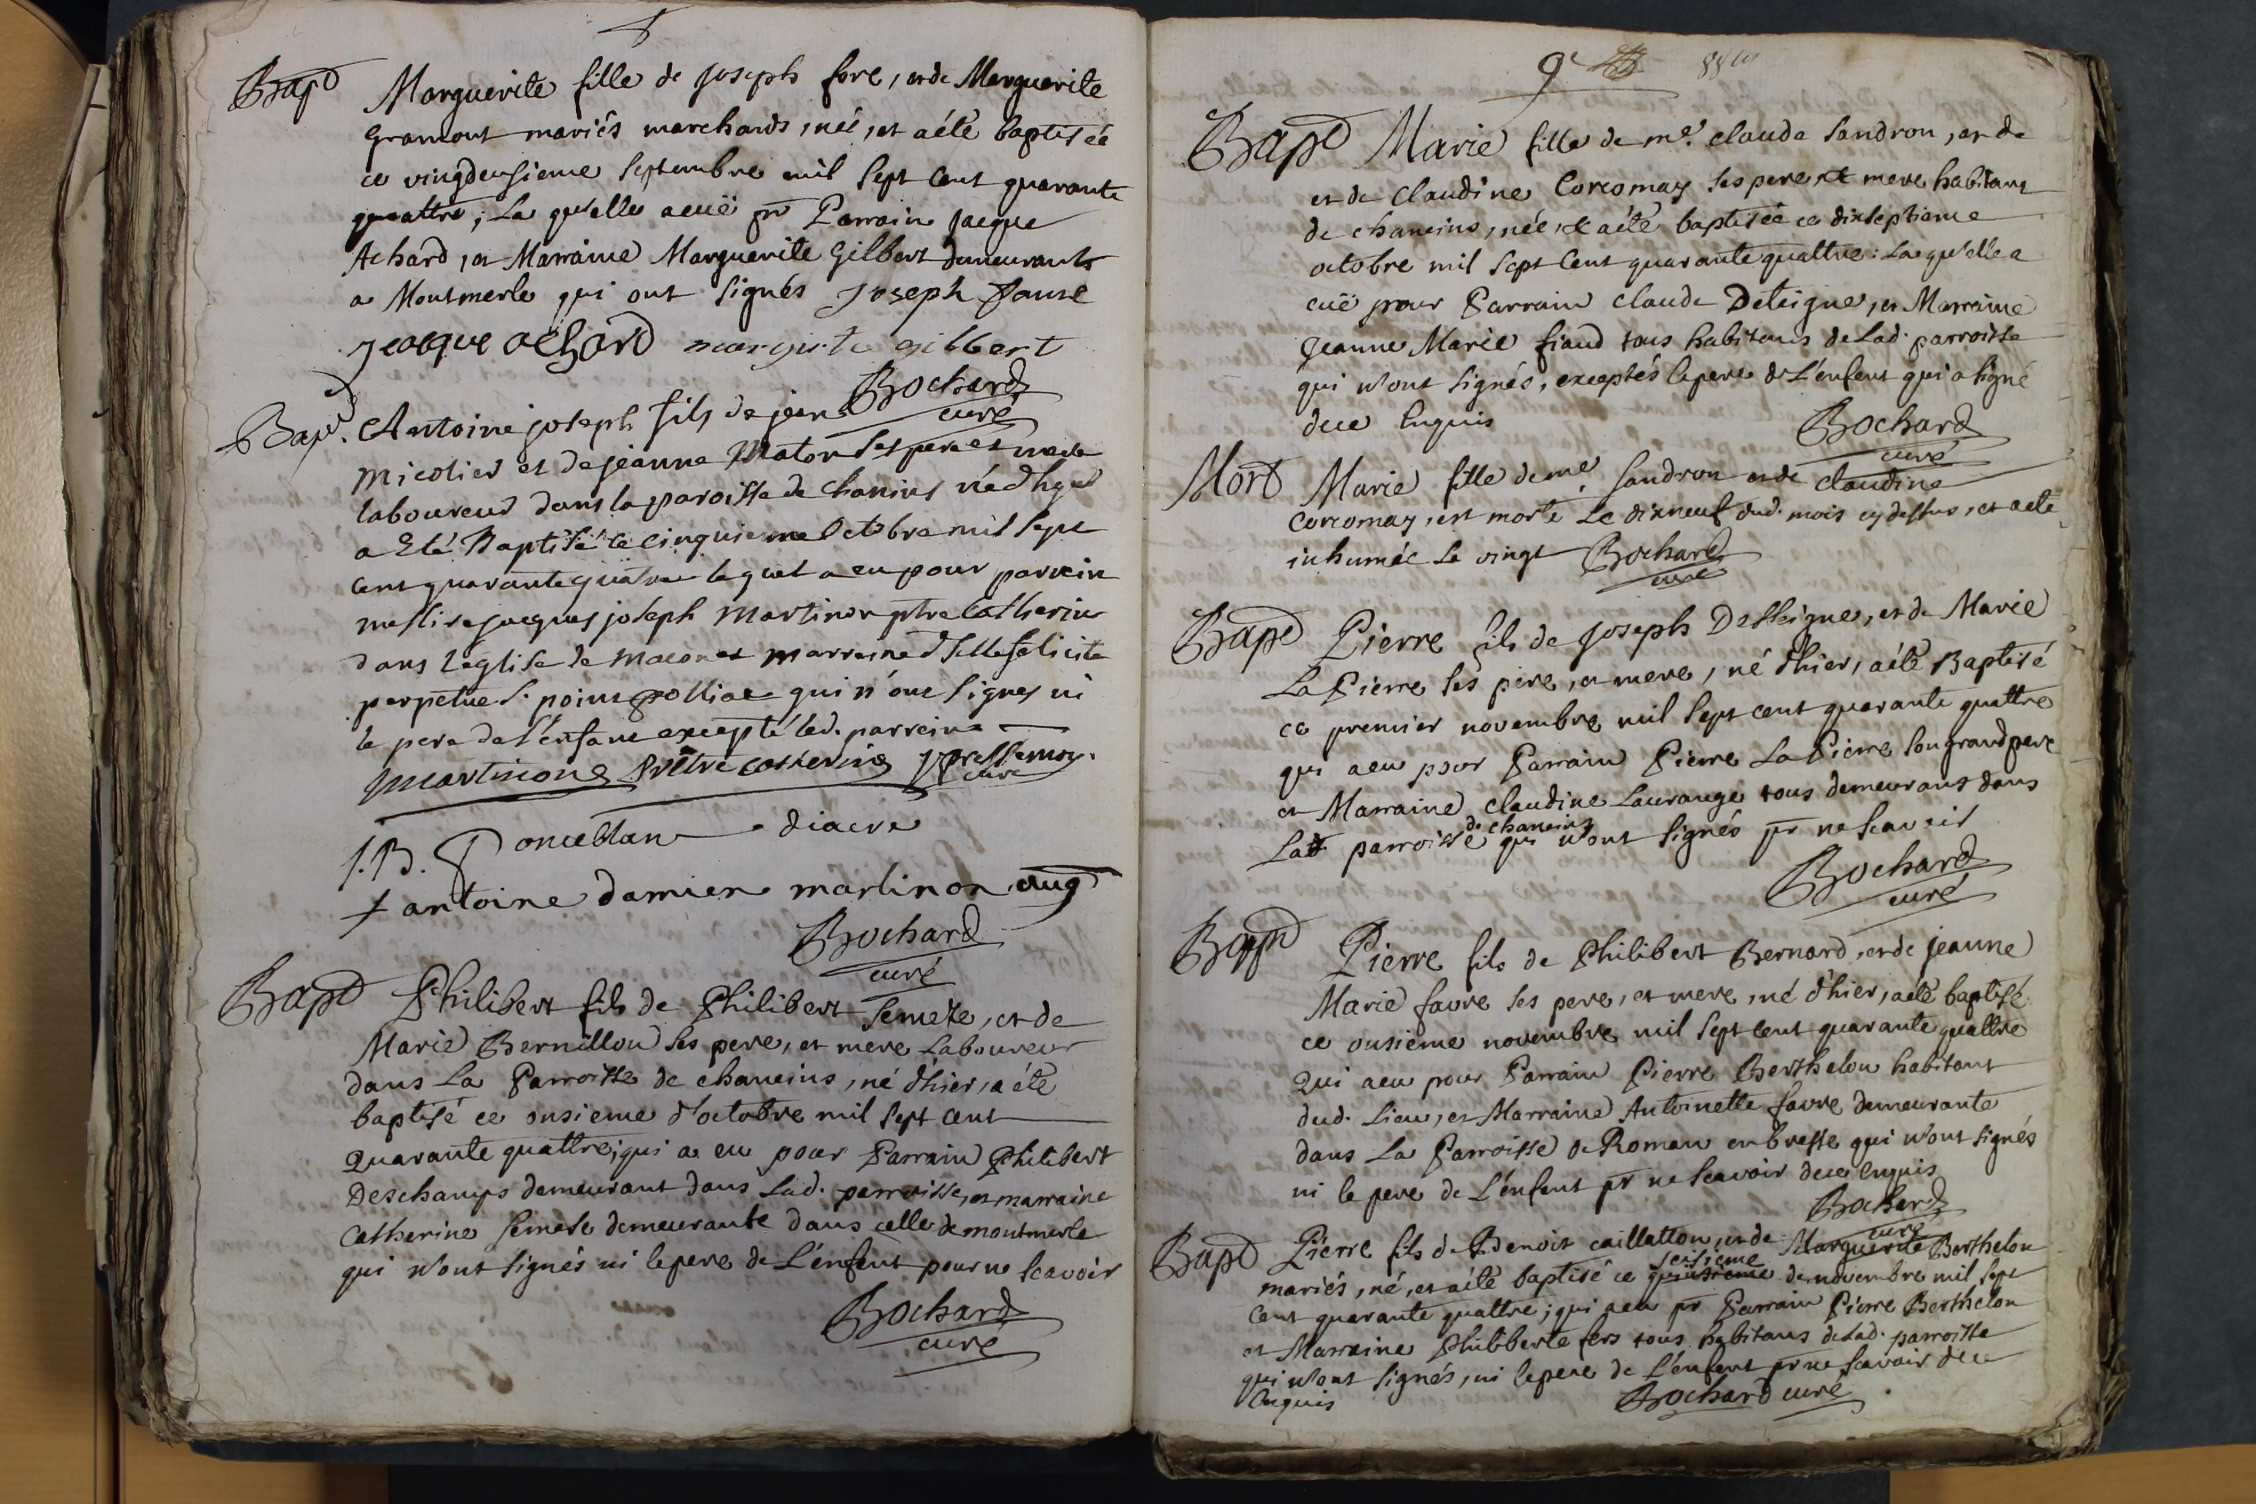 Bapt Marguerite fille de joseph fore, et de Marguerite
gramont mariés marchands, née, et a été baptiséé
ce vingdeusieme septembre mil sept cent quarante
quattre; la qu'elle a euë pr Parrain jacque
Achard, et Marraine Marguerite Gilbert demeurants
a Montmerle qui ont signés joseph faure
jeacque achard margirte gilbert
Bochard
curé
Bapt. Antoine joseph fils de jean
Micolier et de jeanne Maton ses pere et mere
laboureur dans la paroisse de chanins né d'hyer
a Eté Baptisé le cinquieme Octobre mil sept
cent quarante quatre lequel a eu pour parrein
messire jacques joseph martinon ptre
dans l'eglise de macon et marreine dlle felicite
perpetue qui n'ont signes ni
le pere de l'enfant excepté led. parrein
martinon Prêtre
curé
J.B. Ponceblan diacre
+ antoine damien martinon aug
Bochard
curé
Bapt Philibert fils de Philibert semeze, et de
Marie Bernillon ses pere, et mere Laboureur
dans La Parroisse de chaneins, né d'hier, a été
baptisé ce onsieme d'octobre mil sept cent
quarante quattre; qui a eu pour Parrain Philibert
Deschamps demeurant dans lad. parroisse, et marraine
catherine semese demeurante dans celle de montmerle
qui n'ont signés ni le pere de L'énfent pour ne scavoir
Bochard
curé
9e
Bapt Marie fille de me. claude sandron, et de
et de claudine Corcomay ses pere et mere habitant
de chaneins, née, et a été baptiséé ce dixseptieme
octobre mil sept cent quarante quattre: La qu'elle a
euë pour Parrain claude Deteigne, et Marraine
jeanne Marie fiand tous habitants de Lad. parroisse
qui n'ont signés, exceptés le pere de L'énfent qui a signé
de ce Enquis
Bochard
curé
Mort Marie fille de me. sandron et de claudine
Corcomay, est morte Le dixneuf dud. mois cy dessus, et a été
inhumée Le vingt Bochard
curé
Bapt Pierre fils de joseph Detteigne, et de Marie
La Pierre ses pere, et mere, né d'hier, a été Baptisé
ce premier novembre mil sept cent quarante quattre
qui a eu pour Parrain Pierre La Pierre son grand pere
et Marraine claudine Laurange tous demeurant dans
Lad parroisse de chaneins qui n'ont signés pr ne scavoir
Bochard
curé
Bapt Pierre fils de Philibert Bernard, et de jeanne
Marie favre ses pere, et mere, né d'hier, a été baptisé
ce onsieme novembre mil sept cent quarante quattre
Qui a eu pour Parrain Pierre Berthelon habitant
dud. Lieu, et Marraine Antoinette favre demeurante
dans La Parroisse de Roman en bresse qui n'ont signés
ni le pere de L'énfent pr ne scavoir de ce enquis
Bochard
curé
Bapt Pierre fils de Benoit caillatton, et de Marguerite Berthelon
mariés, né, et a été baptisé ce seisieme de novembre mil sept
Cent quarante quattre; qui a eu pr Parrain Pierre Berthelon
et Marraine Philiberte fers tous habitans de Lad. parroisse
qui n'ont signés, ni le pere de L'énfent pr ne scavoir de ce
Enquis
Bochard curé